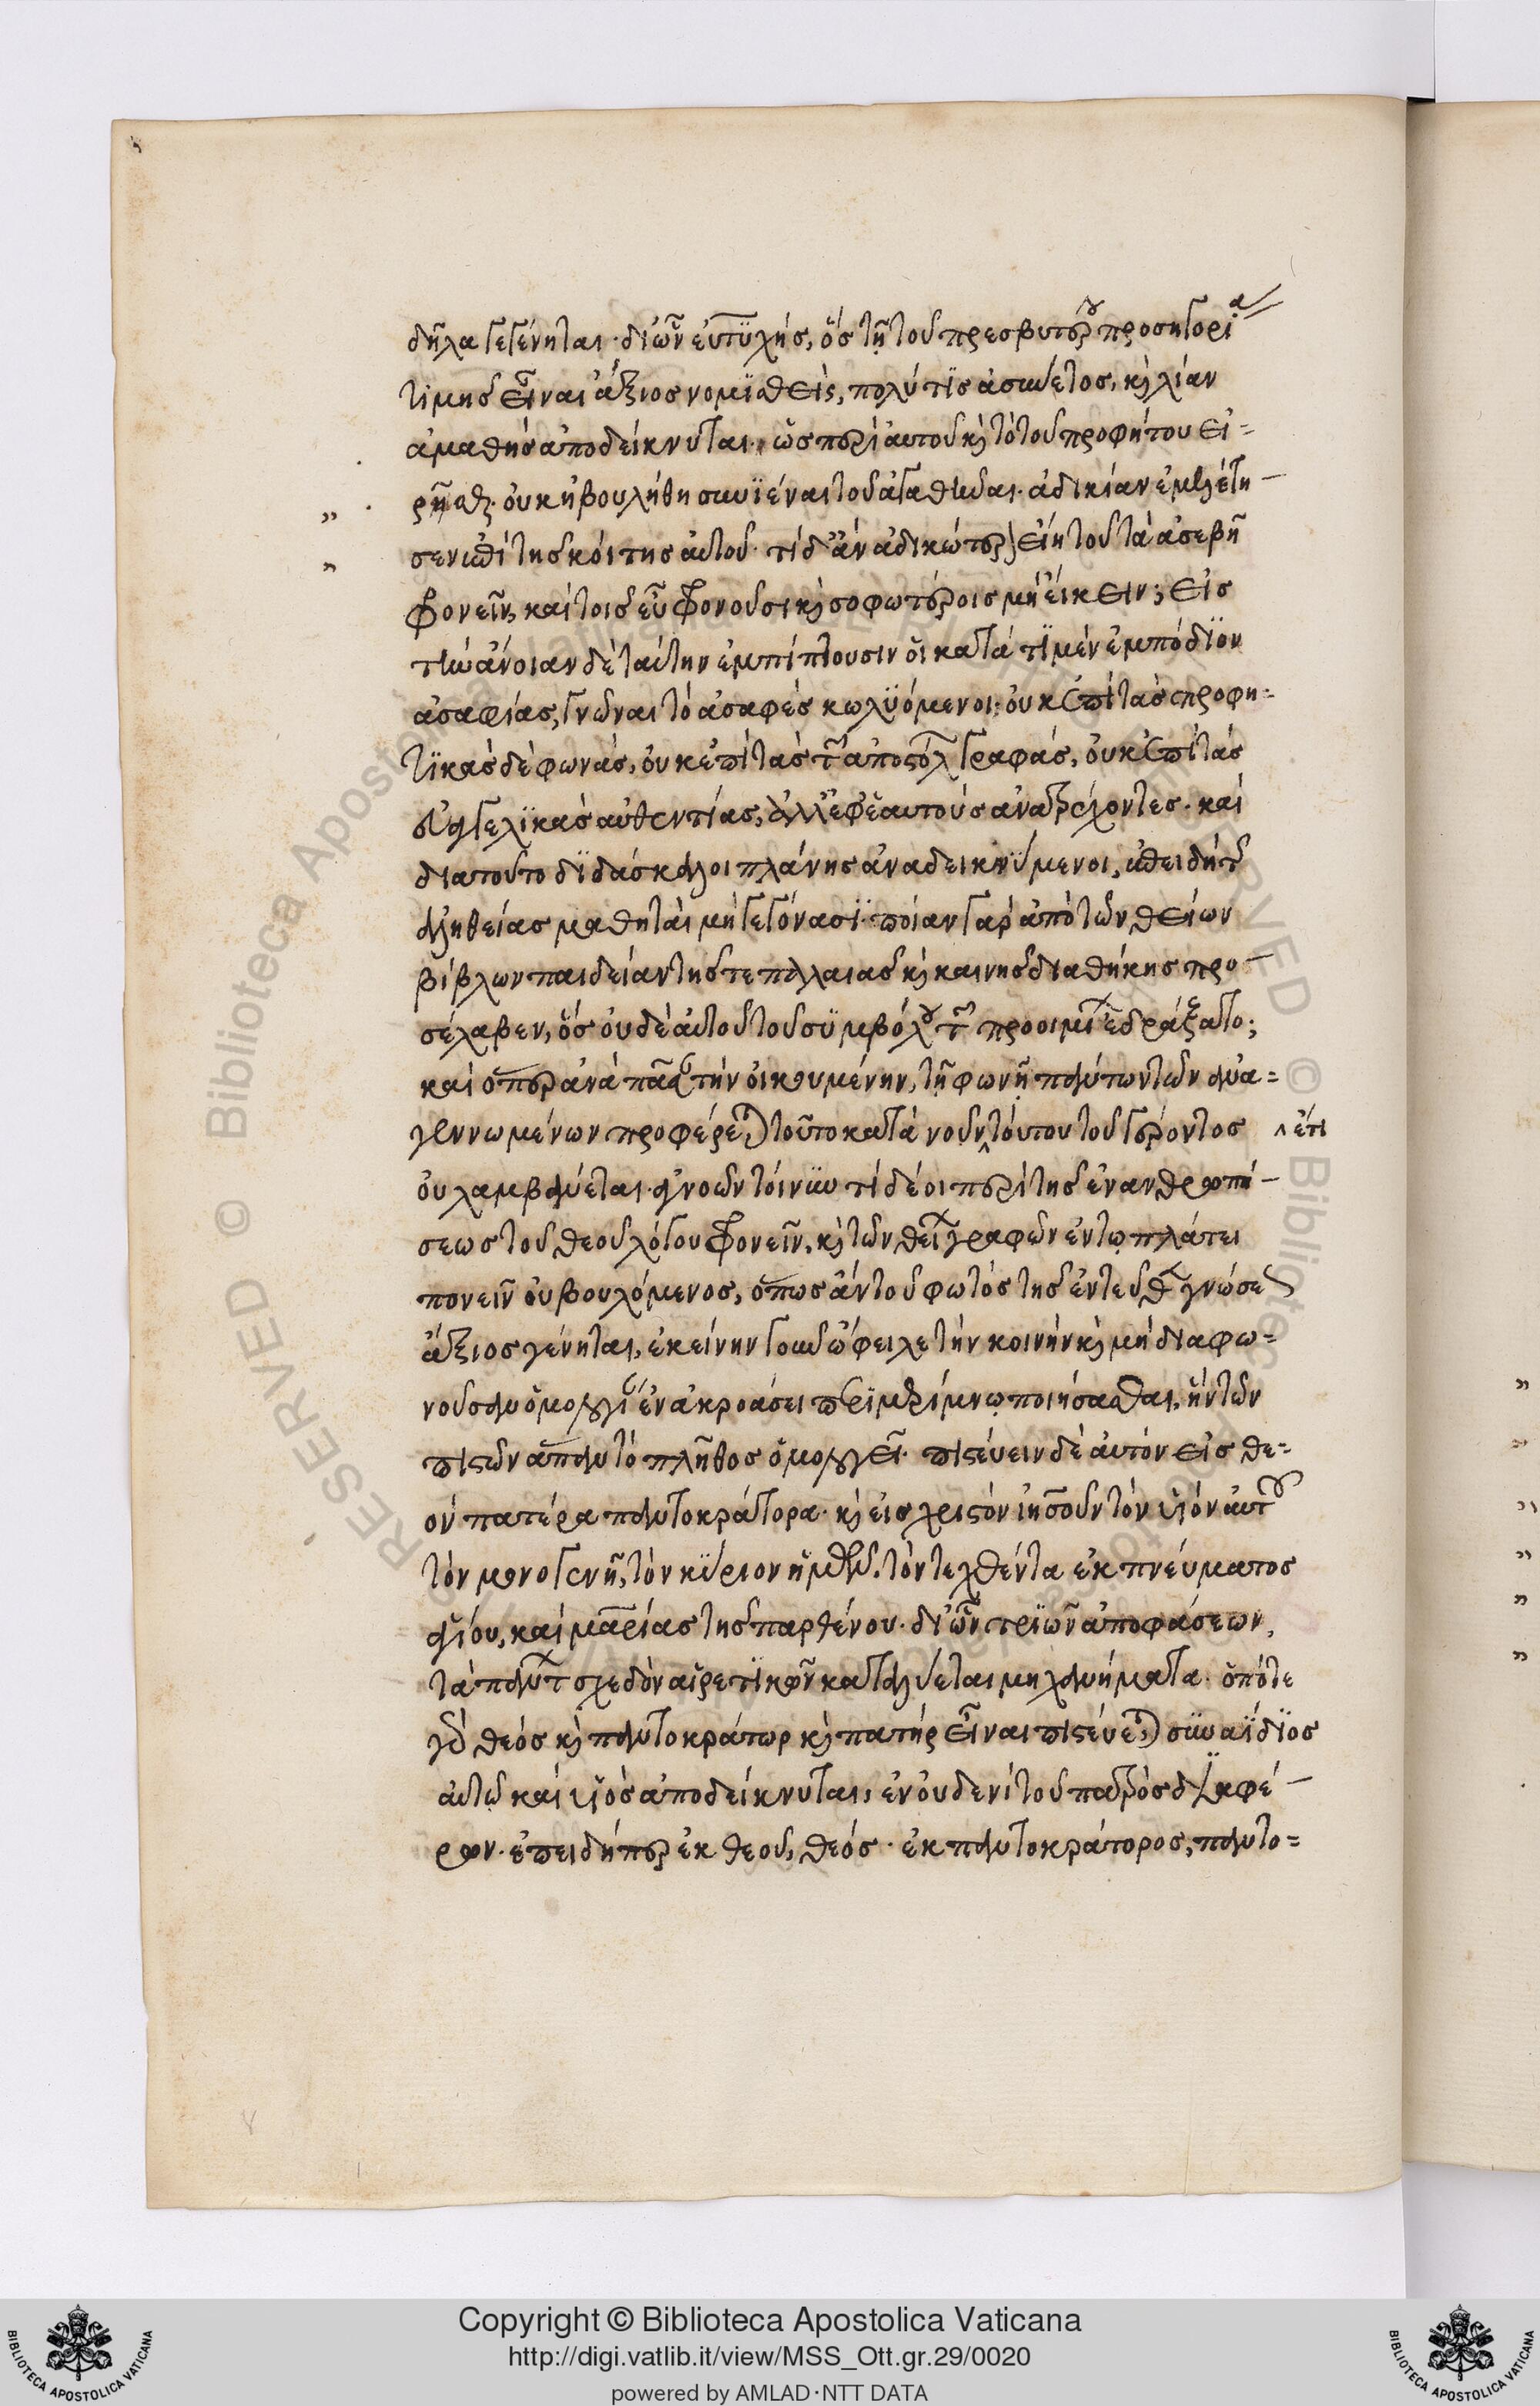 δῆλα γεγένηται· δι' ὧν εὐτϋχής, ὅς τῇ τοῦ πρεσβυτέρου προσηγορία
τιμῆς εἶναι ἄξιος νομϊσθεὶς, πολύ τϊς ἀσύνετος, κὶ λίαν
ἀμαθὴς ἀποδείκνυται· ὡς περὶ αὐτοῦ κὶ τὸ τοῦ προφήτου εἰ=
ρῆσθαι· οὐκ ἠβουλήθη συνϊέναι τοῦ ἀγαθῦναι· ἀδικίαν ἐμελέτη-
σεν ἐπὶ τῆς κοίτης αὐτοῦ· τί δ' ἂν ἀδικώτερον εἴη τοῦ τὰ ἀσεβῆ
φρονεῖν, καὶ τοῖς εὖ φρονοῦσι κὶ σοφωτέροις μὴ εἴκειν; εἰς
τὴν ἄνοιαν δὲ ταύτην ἐμπίπτουσιν οἱ κατά τϊ μὲν ἐμπόδϊον
ἀσαφίας, γνῶναι τὸ ἀσαφὲς κωλϋόμενοι· οὐκ ἐπὶ τὰς προφη=
τϊκὰς δὲ φωνὰς, οὐκ ἐπὶ τὰς τῶν ἀποστόλων γραφάς, οὐκ ἐπὶ τὰς
εὐαγγελϊκὰς αὐθεντίας, ἀλλ' ἐφ' ἑαυτοὺς ἀνατρέχοντες· καὶ
διατοῦτο δϊδάσκαλοι πλάνης ἀναδεικνϋμενοι, ἐπειδὴ τῆς
ἀληθείας μαθηταὶ μὴ γεγόνασϊ· ποίαν γὰρ ἀπὸ τῶν θείων
βίβλων παιδείαν τῆς τε παλαιᾶς κὶ καινῆς διαθήκης προ-
σέλαβεν, ὅς οὐδὲ αὐτοῦ τοῦ σϋμβόλου τῶν προοιμίων ἐδράξατο;
καὶ ὅπερ ἀνὰ πᾶσαν τὴν οἰκουμένην, τῇ φωνῇ πάντων τῶν ἀνα=
γεννωμένων προφέρεται τοῦτο κατὰ νοῦν τούτου τοῦ γέροντος ἔτι
οὐ λαμβάνεται· ἀγνοῶν τοίνϋν τί δέοι περὶ τῆς ἐνανθρωπή-
σεως τοῦ θεοῦ λόγου φρονεῖν, κὶ τῶν θείων γραφῶν ἐν τῷ πλάτει
πονεῖν οὐ βουλόμενος, ὅπως ἂν τοῦ φωτὸς τῆς ἐντεῦθεν γνώσεως
ἄξιος γένηται, ἐκείνην γοῦν ὤφειλε τὴν κοινὴν κὶ μὴ διαφω=
νοῦσαν ὁμολογίαν ἐν ἀκροάσει περϊμερίμνῳ ποιήσασθαι, ἣν τῶν
πιστῶν ἅπαν τὸ πλῆθος ὁμολογεῖ· πιστεύειν δὲ αὐτὸν εἰς θε=
ὸν πατέρα παντοκράτορα· κὶ εἰς χριστὸν ἰησοῦν τὸν υἱὸν αὐτοῦ
τὸν μονογενῆ, τὸν κϋριον ἡμῶν, τὸν τεχθέντα ἐκ πνεύματος
ἁγίου, καὶ μαρίας τῆς παρθένου· δι' ὧν τρϊῶν ἀποφάσεων,
τὰ πάντων σχεδὸν αἱρετϊκῶν καταλύεται μηχανήματα· ὁπότε
γὰρ θεὸς κὶ παντοκράτωρ κὶ πατὴρ εἶναι πιστεύεται σϋναΐδϊος
αὐτῷ καὶ υἱὸς ἀποδείκνυται, ἐν οὐδενὶ τοῦ πατρὸς διαφέ-
ρων· ἐπειδήπερ ἐκ θεοῦ, θεός· ἐκ παντοκράτορος, παντο=
Copyright © Biblioteca Apostolica Vaticana
http://digi.vatlib.it/view/MSS_Ott.gr.29/0020
powered by AMLAD·NTT DATA